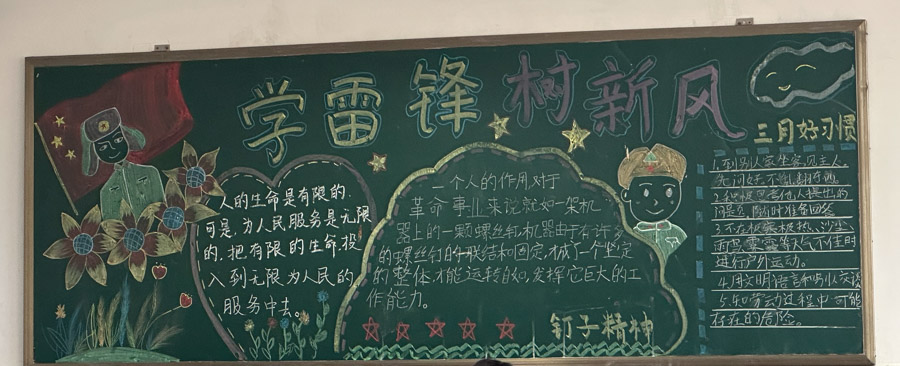 学雷锋树新风
人的生命是有限的,
可是,为人民服务是无限
的,把有限的生命,投
入到无限为人民的
服务中去。
一个人的作用,对于
革命事业来说就如一架机
器上的一颗螺丝钉,机器由于有许多
的螺丝钉的联结和固定,械了一个坚定
的整体,才能运转自如,发挥它巨大的工
作能力。
钉子精神
三月好习惯
1.到别人家坐客见主人,
先问好,不乱翻东西
2.积极思考他人提出的
问题,随时准备回答
3.不在极寒、极热、沙尘
雨雪雾霾的天气不佳时
进行户外运动。
4.用文明语言和别人交谈
5.知劳动过程中可能
存在的危险。